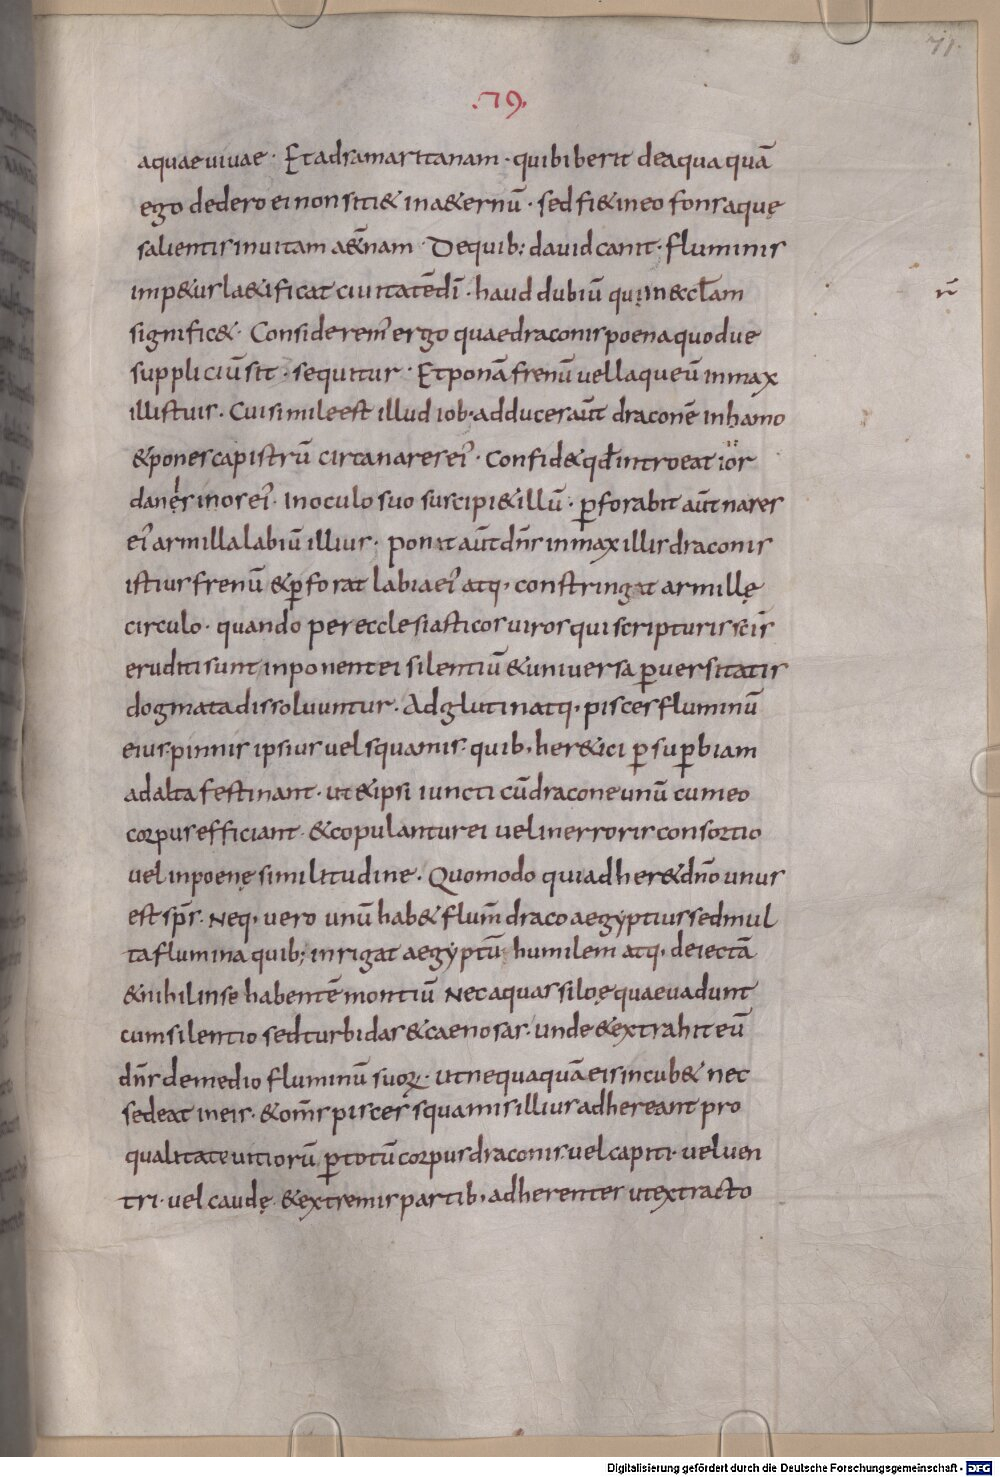 71.
.79.
aquae vivae · Et ad samaritanam · qui biberit de aqua quā
ego dedero ei non siti& in a&ernū · sed fi& in eo fons aquę
salientis in vitam a&̄nam · De quib; david canit · fluminis
imp&us la&ificat civitatē dī · haud dubiū quin ecclām
n̄
signific& · Consideremꝰ ergo quae draconis poena quodue
suppliciū sit · sequitur · Et ponā frenū vel laqueū in max
illis tuis · Cui simile est illud iob · adduces aūt draconē in hamo
& pones capistrū circa nares eiꝰ · Confid& qđ introeat ior
danęs in os eiꝰ · In oculo suo suscipi& illū · ꝑforabit aūt nares
eiꝰ armilla labiū illius · ponat aūt dn̄s in maxillis draconis
istius frenū & ꝑforat labia eiꝰ atq, constringat armillę
circulo · quando per ecclesiasticos viros qui scripturis sc̄is
eruditi sunt inponent ei silentiū & universa ꝑversitatis
dogmata dissoluuntur · Adglutinatq, pisces fluminū
eius pinnis ipsius vel squamis · quib, her&ici ꝑ suꝑbiam
ad alta festinant · ut & ipsi iuncti cū dracone unū cum eo
corpus efficiant · & copulantur ei vel in erroris consortio
vel in poenę similitudine · Quomodo qui adher& dn̄o unus
est sp̄s · Neq, vero unū hab& flum̄ draco aegyptius sed mul
ta flumina quib; inrigat aegyptū humilem atq, deiectā
& nihil in se habentē montiū Nec aquas siloę quae vadunt
cum silentio sed turbidas & caenosas · unde & extrahit eū
dn̄s de medio fluminū suoꝝ · ut nequaquā eis incub& nec
sedeat in eis · & om̄s pisces squamis illius adhereant pro
qualitate vitiorū ꝑ totū corpus draconis vel capiti · vel ven
tri · vel caudę · & extremis partib, adherentes ut extracto
Digitalisierung gefördert durch die Deutsche Forschungsgemeinschaft - DFG